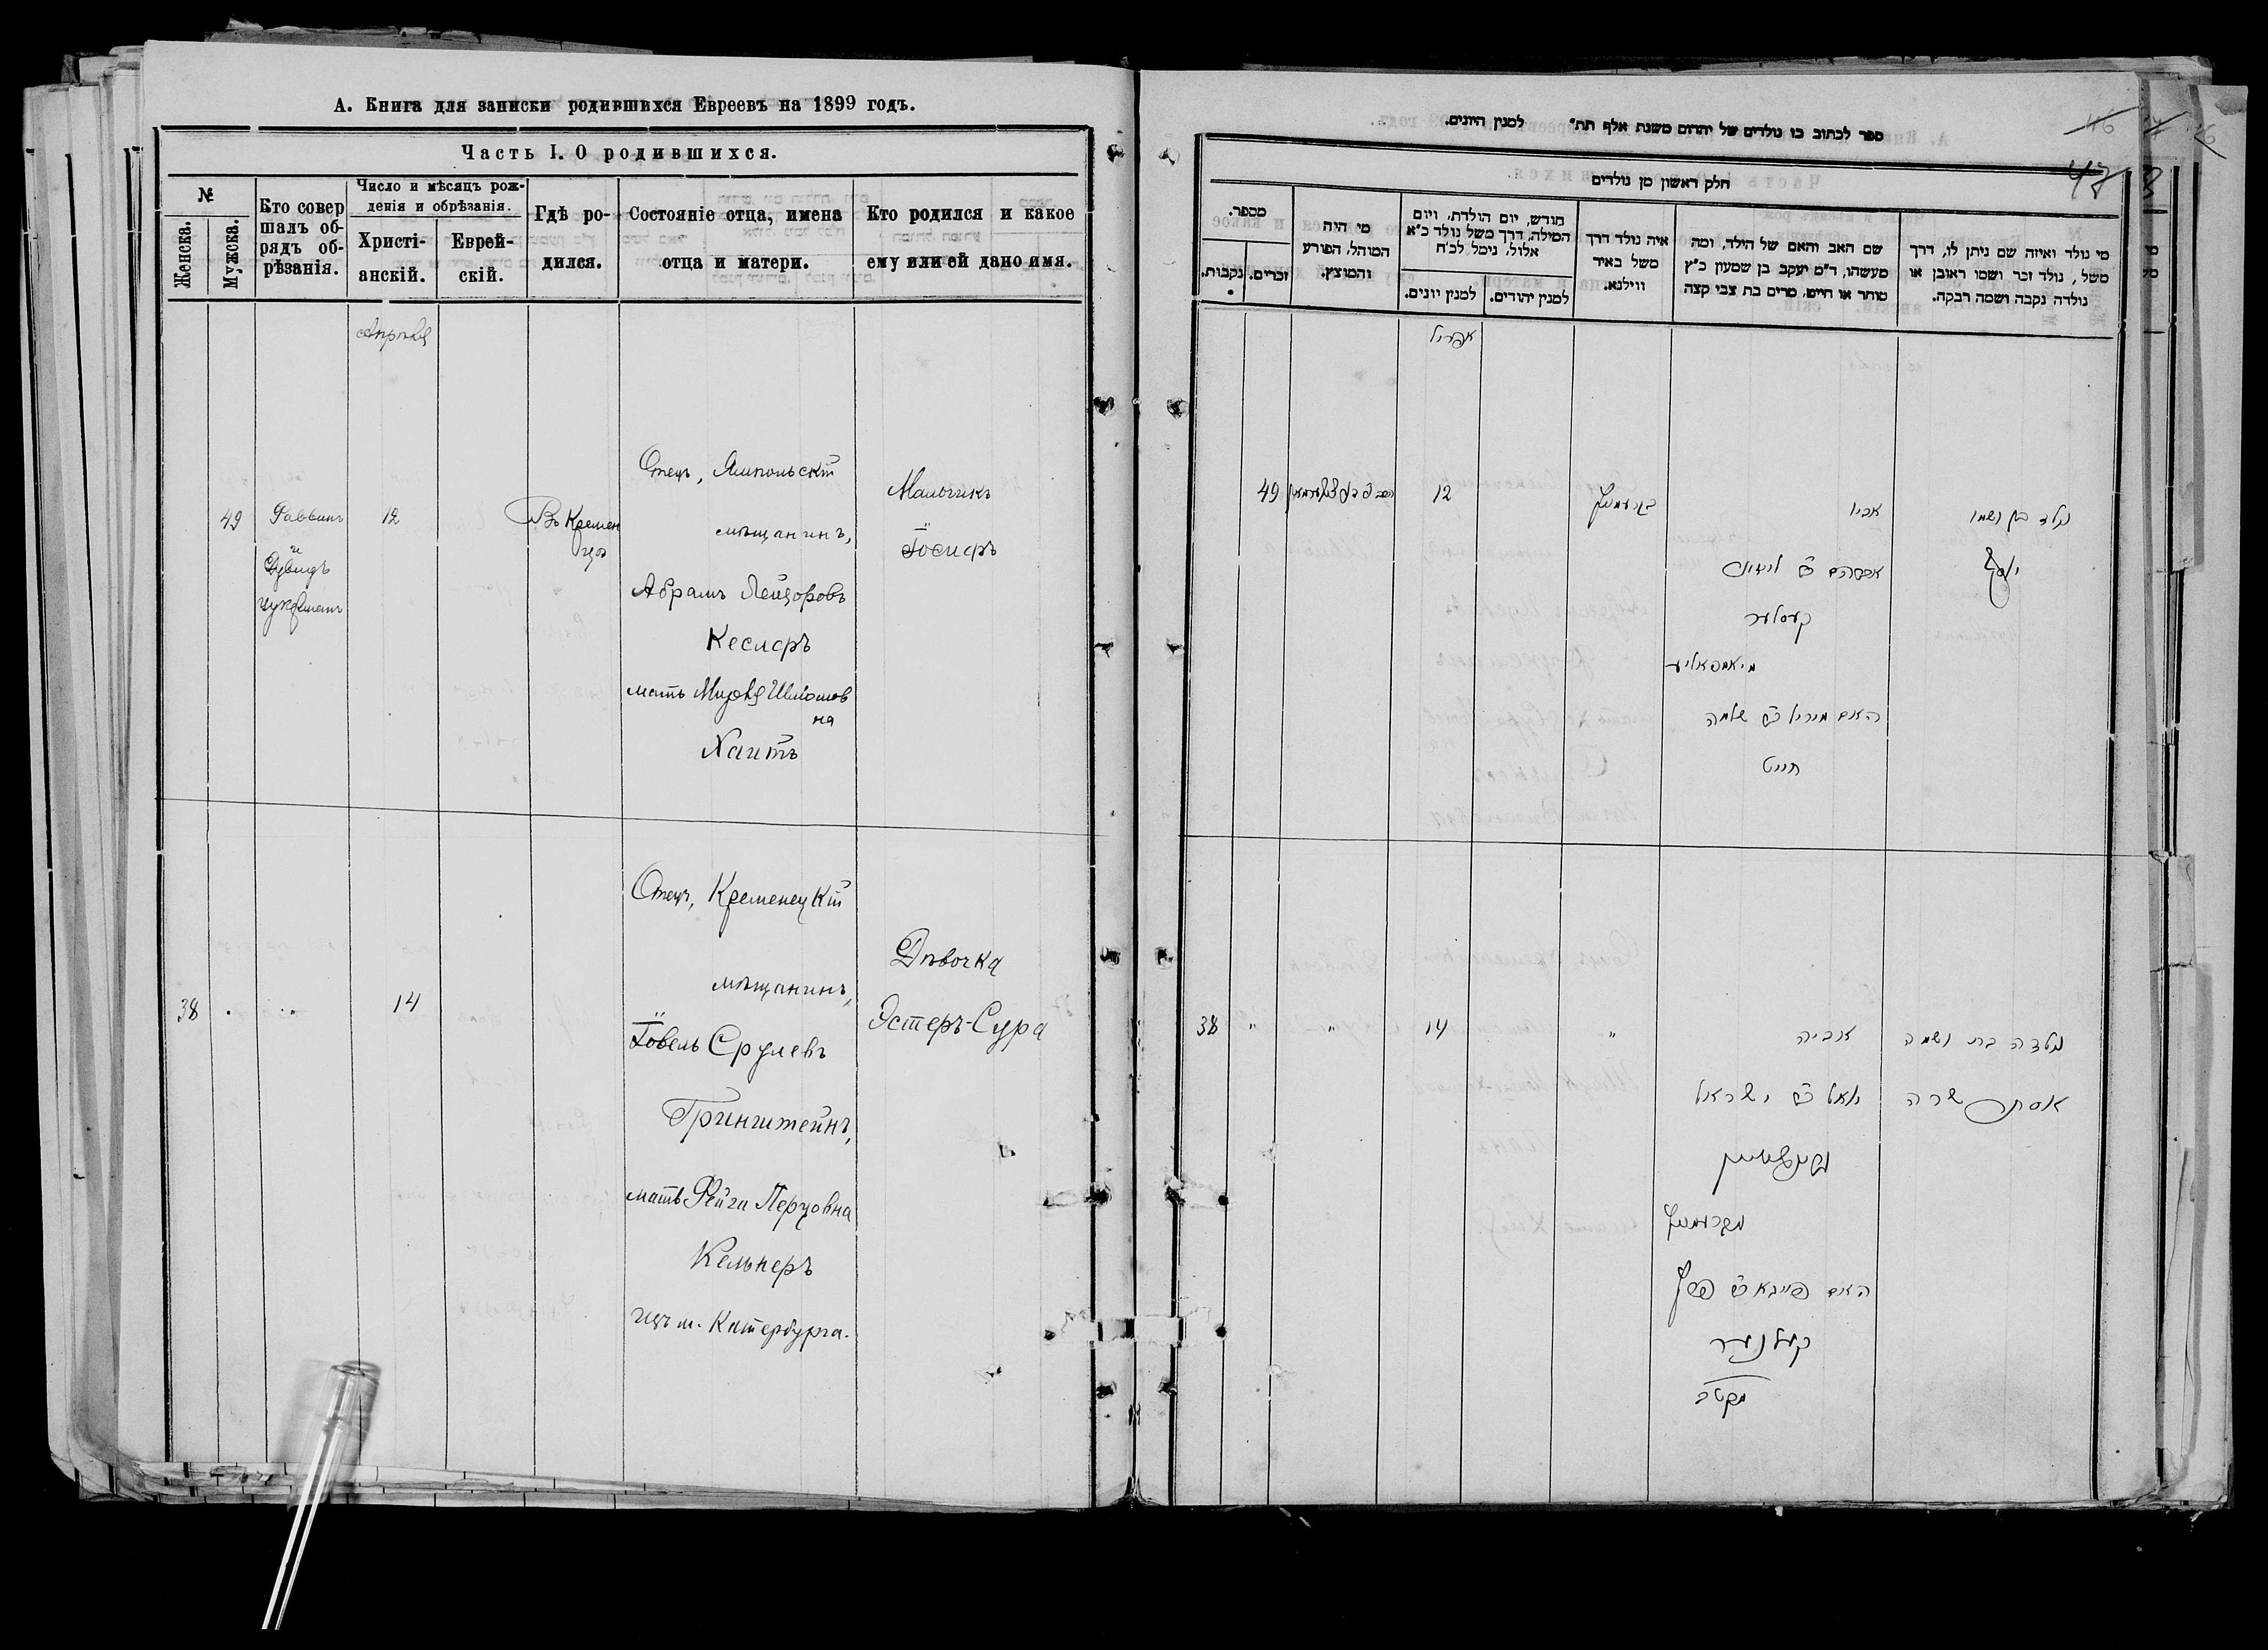 А. Книга для записки родившихся Евреевъ на 1899 годъ.
Часть I. О родившихся.
№
Женска.
Мужска.
Кто совер
шалъ об-
рядъ об-
рѣзанія.
Число и мѣсяцъ рож-
денія и обрѣзанія.
Христі-
анскій.
Еврей-
скій.
Гдѣ ро-
дился.
Состояніе отца, имена
отца и матери.
Кто родился и какое
ему или ей дано имя.
Апрѣля
49
Раввинъ
и
Дувидъ
Цукерманъ
12
Въ Кремен
цѣ
Отецъ, Ямпольскій
мѣщанинъ,
Абрамъ Лейзоровъ
Кеслеръ
мать Миреля Шліомов
на
Хаитъ
Мальчикъ
Іосифъ
38
14
Отецъ, Кременецкій
мѣщанинъ,
Іовель Срулевъ
Гринштейнъ,
мать Фейга Перцовна
Кельнеръ
изъ м. Катербурга.
Дѣвочка
Эстеръ-Сура
ספר לכתוב בו נולדים של יהדום משנת אלף תת״ למנין היונים.
46
47
חלק ראשון מן נולדים
מי נולד ואיזה שם ניתן לו, דרך
משל, נולד זכר ושמו ראובן או
נולדה נקבה ושמה רבקה.
שם האב והאם של הילד, ומה
מעשהו, ד״מ יעקב בן שמעון כ״ץ
סוחר או חייט, מרים בת צבי קצה
איה נולד דרך
משל באיד
ווילנא.
חודש, יום הולדת, ויום
המילה, דרך משל נולד כ״א
אלול, נימל לכ״ח
למנין יהודים.
למנין יונים.
מי היה
המוהל, הפורע
והמוצץ.
מספר.
זכרים.
נקבות.
אפריל
49
12
קרעמניץ
אביו
אברהם ב״ר לייזער
קעסלער
מיאמפאליע
האם מיריל ב״ר שלמה
חייט
נולד בן ושמו
יוסף
38
"
"
14
"
אביה
יואל ב״ר ישראל
גרינשטיין
מקרעמניץ
האם פייגא ב״ר פרץ
קעלנער
מקטב
נולדה בת ושמה
אסתר שרה